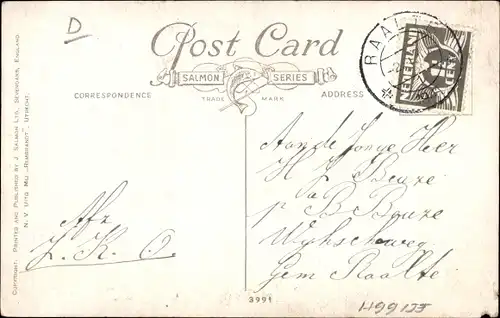 D
Post Card
SALMON SERIES
TRADE MARK
CORRESPONDENCE
ADDRESS
RAALTE
NEDERLAND
COPYRIGHT. PRINTED AND PUBLISHED BY J. SALMON LTD., SEVENOAKS, ENGLAND.
N. V. UITG MIJ „REMBRANDT", UTRECHT.
Afz
Z. K. O.
Aan de Jonge Heer
H
p
Gem Raalte
3991